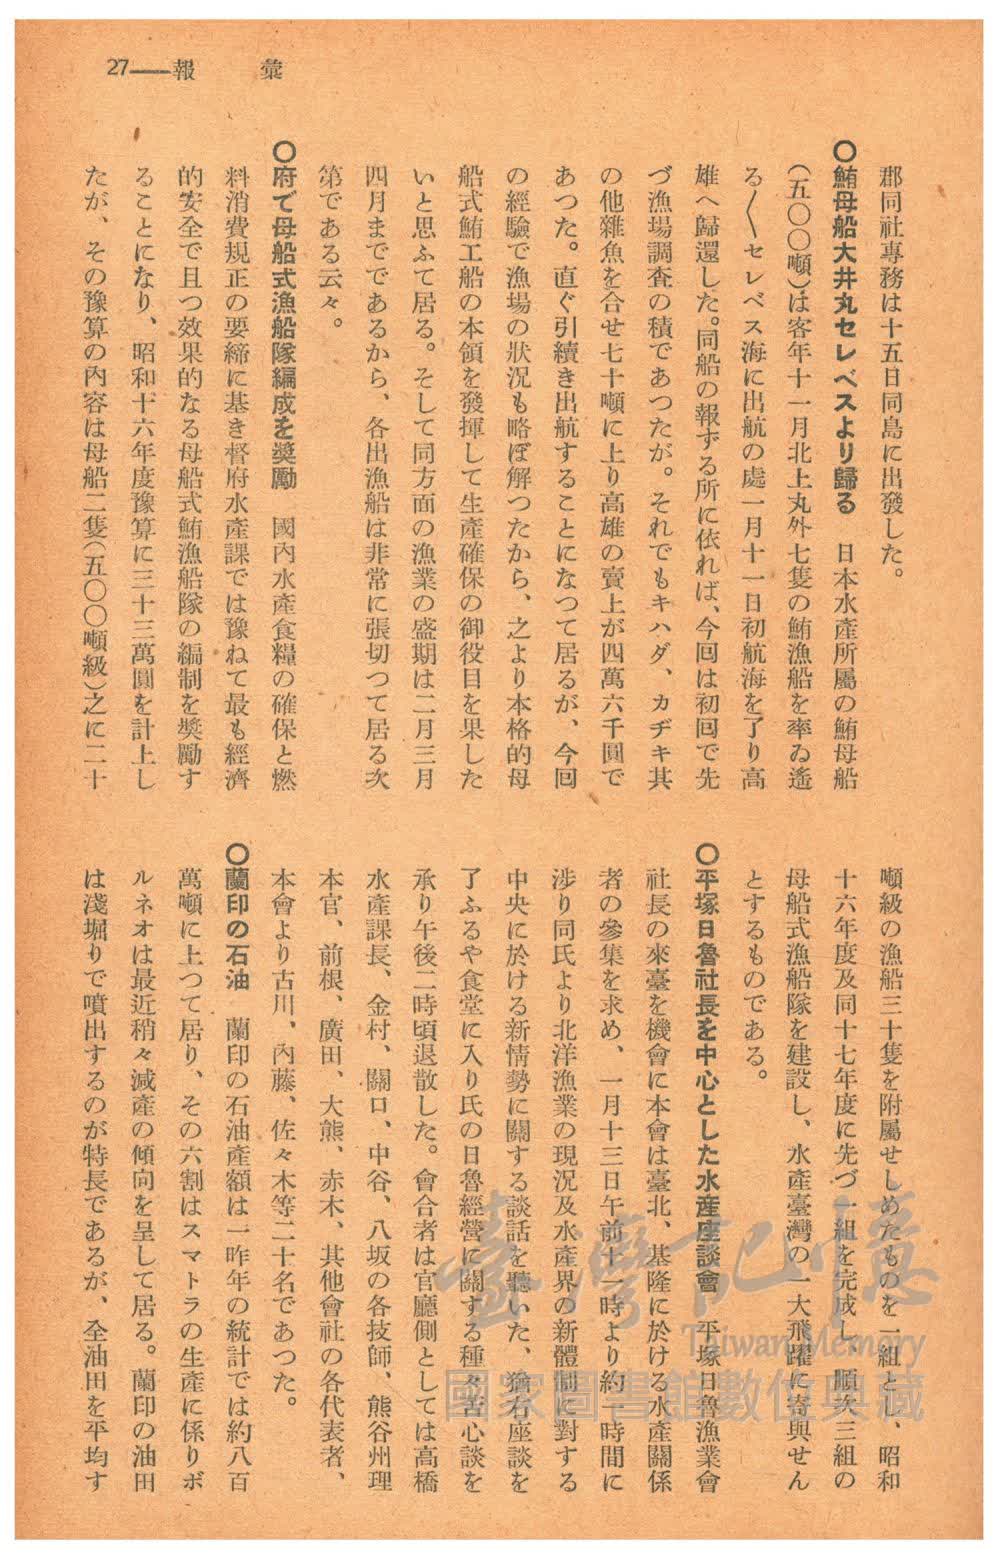 27——報　　彙
郡同社專務は十五日同島に出發した。
〇鮪母船大井丸セレベスより歸る　日本水產所屬の鮪母船
(五〇〇噸)は客年十一月北上丸外七隻の鮪漁船を率ゐ遙
る〱セレベス海に出航の處一月十一日初航海を了り高
雄へ歸還した。同船の報ずる所に依れば、今回は初回で先
づ漁場調査の積であつたが。それでもキハダ、カヂキ其
の他雜魚を合せ七十噸に上り高雄の賣上が四萬六千圓で
あつた。直ぐ引續き出航することになつて居るが、今回
の經驗で漁場の狀況も略ぼ解つたから、之より本格的母
船式鮪工船の本領を發揮して生產確保の御役目を果した
いと思ふて居る。そして同方面の漁業の盛期は二月三月
四月までであるから、各出漁船は非常に張切つて居る次
第である云々。
〇府で母船式漁船隊編成を奬勵　國內水產食糧の確保と燃
料消費規正の要締に基き督府水產課では豫ねて最も經濟
的安全で且つ效果的なる母船式鮪漁船隊の編制を奬勵す
ることになり、昭和十六年度豫算に三十三萬圓を計上し
たが、その豫算の內容は母船二隻(五〇〇噸級)之に二十
噸級の漁船三十隻を附屬せしめたものを一組とし、昭和
十六年度及同十七年度に先づ一組を完成し、順次三組の
母船式漁船隊を建設し、水產臺灣の一大飛躍に寄與せん
とするものである。
〇平塚日魯社長を中心とした水產座談會　平塚日魯漁業會
社長の來臺を機會に本會は臺北、基隆に於ける水產關係
者の參集を求め、一月十三日午前十一時より約一時間に
涉り同氏より北洋漁業の現況及水產界の新體制に對する
中央に於ける新情勢に關する談話を聽いた、猶右座談を
了ふるや食堂に入り氏の日魯經營に關する種々苦心談を
承り午後二時頃退散した。會合者は官廳側としては高橋
水產課長、金村、關口、中谷、八坂の各技師、熊谷州理
本官、前根、廣田、大熊、赤木、其他會社の各代表者、
本會より古川、內藤、佐々木等二十名であつた。
〇蘭印の石油　蘭印の石油產額は一昨年の統計では約八百
萬噸に上つて居り、その六割はスマトラの生產に係りボ
ルネオは最近稍々減產の傾向を呈して居る。蘭印の油田
は淺堀りで噴出するのが特長であるが、全油田を平均す
臺灣記憶
Taiwan Memory
國家圖書館數位典藏